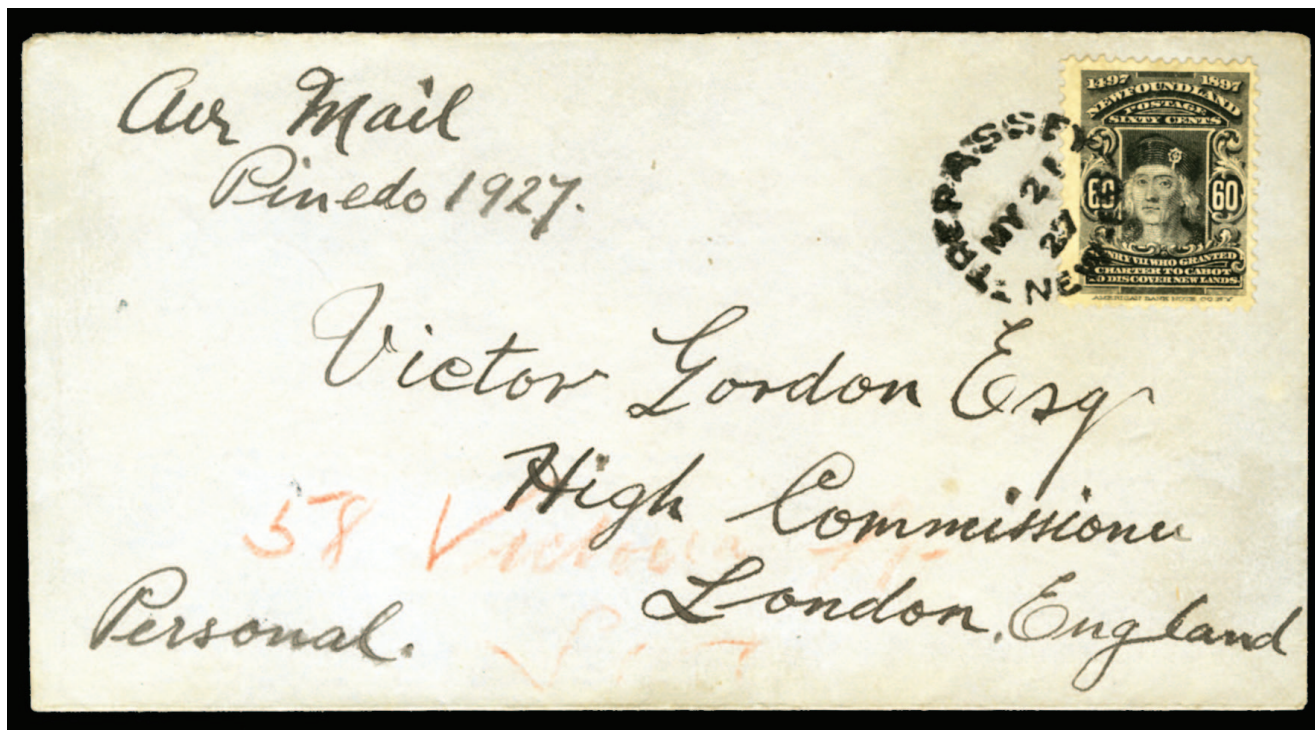 Air Mail
Pinedo 1927.
1497 1897
NEWFOUNDLAND
POSTAGE
SIXTY CENTS
60 60
HENRY VII WHO GRANTED
CHARTER TO CABOT
TO DISCOVER NEW LANDS
AMERICAN BANK NOTE CO. N.Y.
TREPASSEY
MY 21
27
NEW
Victor Gordon Esq
High Commissioner
London, England
58 Victoria St
Personal.